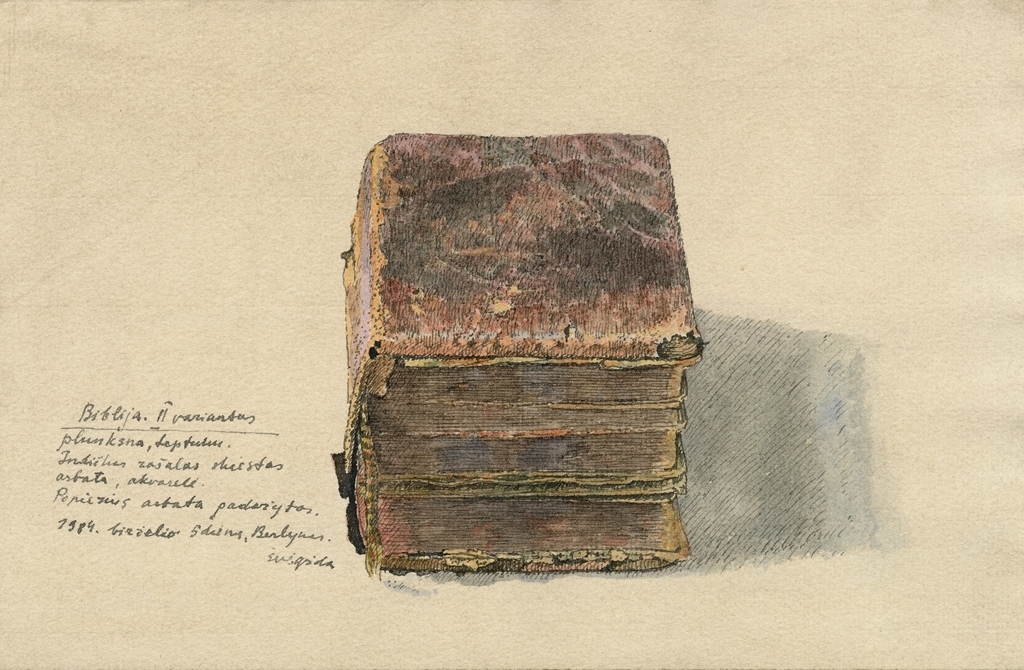 Biblija. II variantas
plunksna, teptukas.
Indiškas rašalas skiestas
arbata, akvarelė.
Popierius arbata padažytas.
1984. birželio 5 dieną, Berlynas.